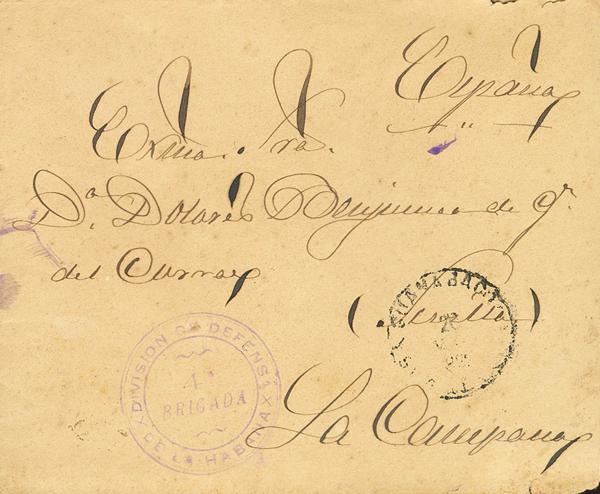 España
Exma. Sra.
Dª. Dolores Benjumea de G.
del Corral
(Sevilla)
La Campana
DIVISION DE DEFENSA
1ª
BRIGADA
DE LA HABANA
GUANABACOA